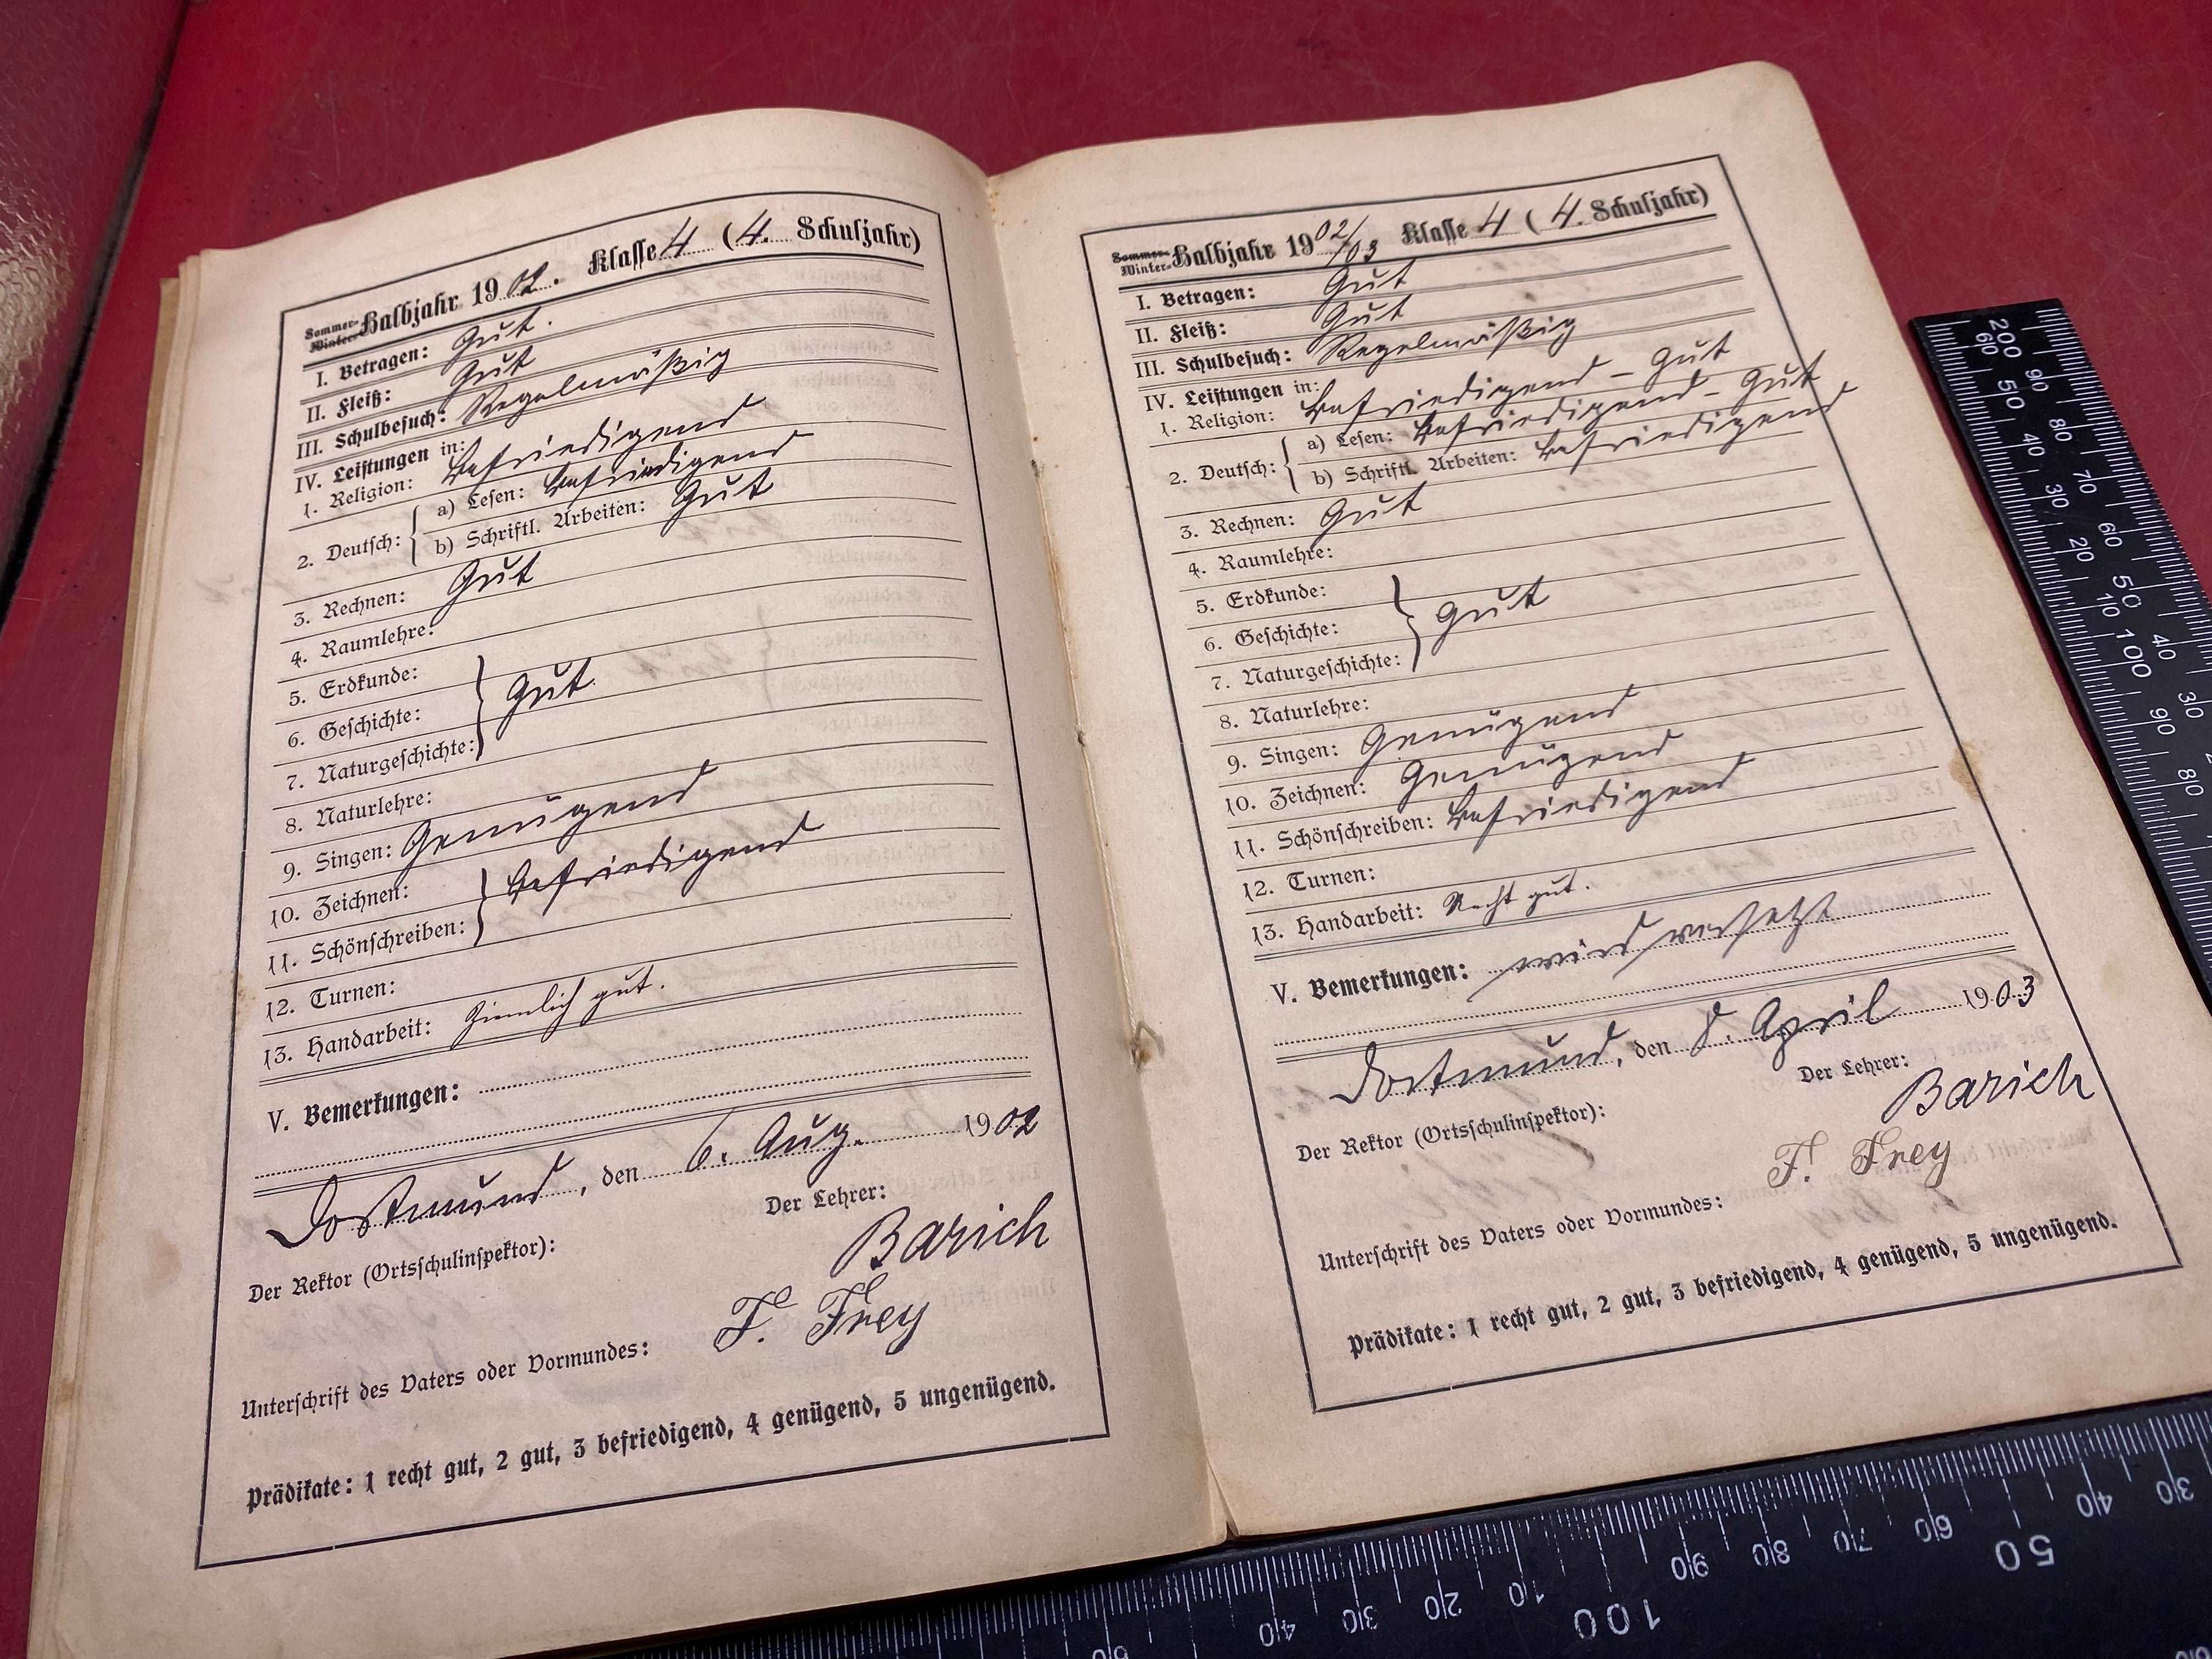 Sommer-
Winter-Halbjahr 1902. Klasse 4 (4. Schuljahr)
I. Betragen: Gut.
II. Fleiß: Gut
III. Schulbesuch: Regelmäßig
IV. Leistungen in:
1. Religion: Befriedigend
2. Deutsch: { a) Lesen: Befriedigend
b) Schriftl. Arbeiten: Gut
3. Rechnen: Gut
4. Raumlehre:
5. Erdkunde:
6. Geschichte: } Gut.
7. Naturgeschichte:
8. Naturlehre:
9. Singen: Genügend
10. Zeichnen: } Befriedigend
11. Schönschreiben:
12. Turnen:
13. Handarbeit: Ziemlich gut.
V. Bemerkungen:
Dortmund, den 6. Aug. 1902
Der Lehrer:
Barich
Der Rektor (Ortsschulinspektor):
F. Frey
Unterschrift des Vaters oder Vormundes:
Prädikate: 1 recht gut, 2 gut, 3 befriedigend, 4 genügend, 5 ungenügend.
Sommer-
Winter-Halbjahr 1902/03 Klasse 4 (4. Schuljahr)
I. Betragen: Gut
II. Fleiß: Gut
III. Schulbesuch: Regelmäßig
IV. Leistungen in:
1. Religion: Befriedigend – Gut
2. Deutsch: { a) Lesen: Befriedigend – Gut
b) Schriftl. Arbeiten: Befriedigend
3. Rechnen: Gut
4. Raumlehre:
5. Erdkunde:
6. Geschichte: } Gut
7. Naturgeschichte:
8. Naturlehre:
9. Singen: Genügend
10. Zeichnen: Genügend
11. Schönschreiben: Befriedigend
12. Turnen:
13. Handarbeit: Recht gut.
V. Bemerkungen: wird versetzt
Dortmund, den 8. April 1903
Der Lehrer:
Barich
Der Rektor (Ortsschulinspektor):
F. Frey
Unterschrift des Vaters oder Vormundes:
Prädikate: 1 recht gut, 2 gut, 3 befriedigend, 4 genügend, 5 ungenügend.
200 90 80 70 60 50 40 30
60 50 40 30 20 10 100 90 80
30 40 50 60 70 80 90 100 10 20 30 40